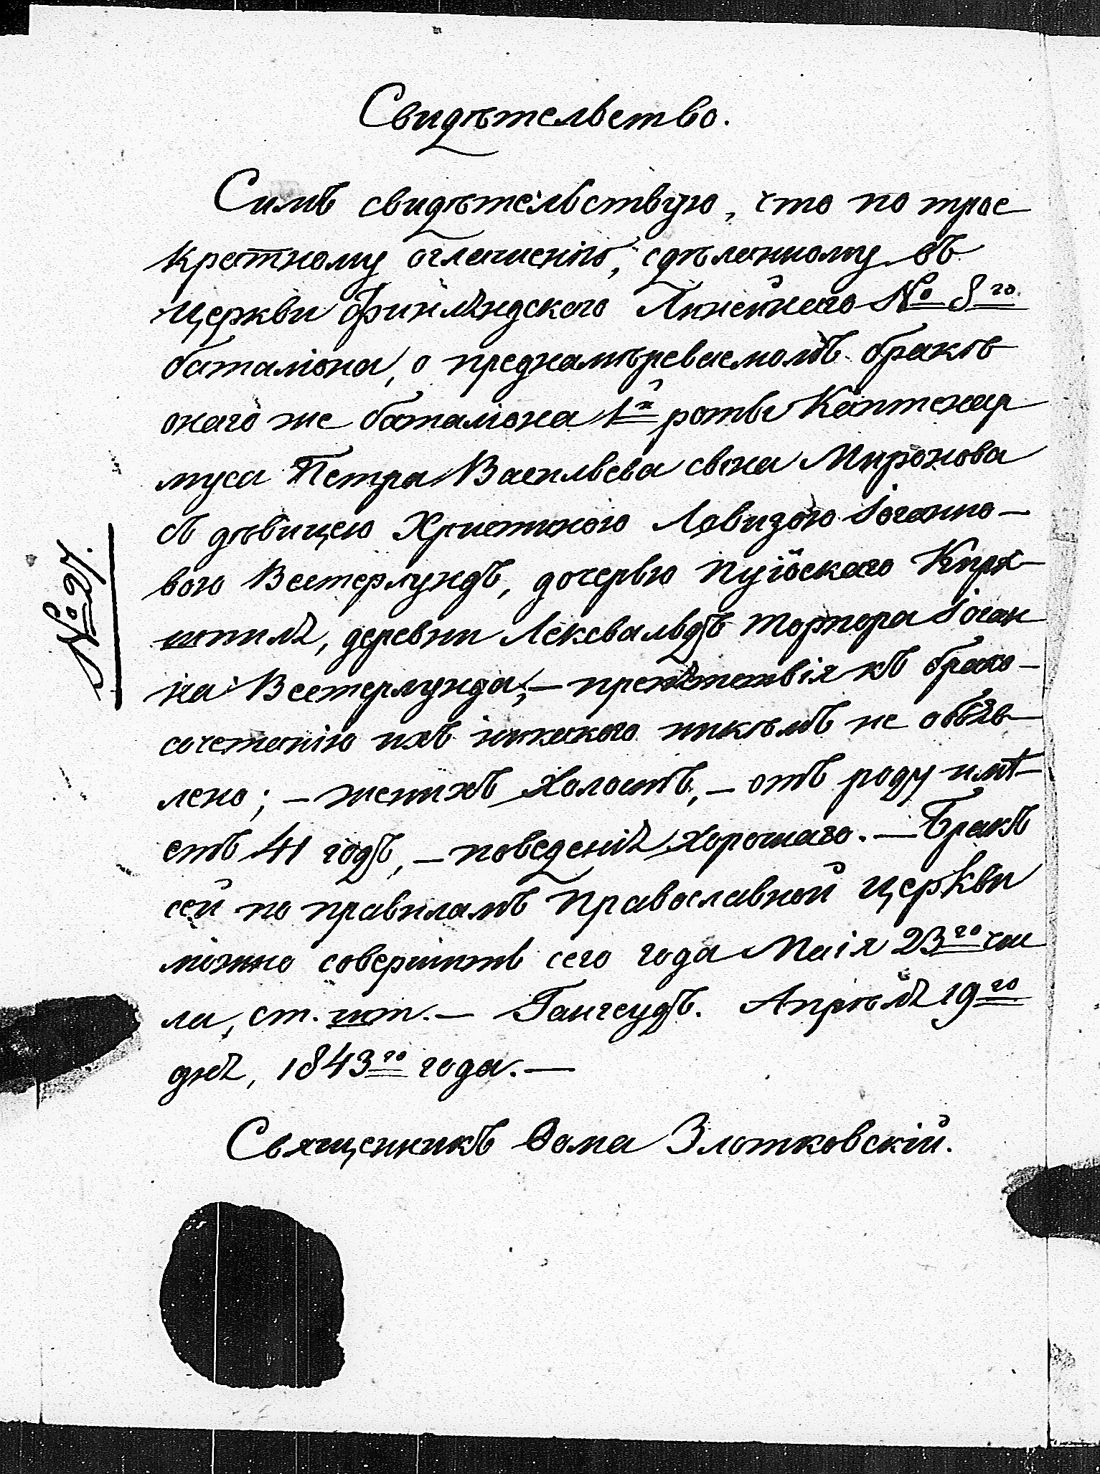 Свидѣтельство.
Симъ свидѣтельствую, что по трое
кратному оглашенію, сдѣланному въ
Церкви Финляндскаго Линейнаго № 8го
баталіона, о преднамѣреваемомъ бракѣ
онаго же баталіона 1й роты Каптенар
муса Петра Васильева сына Миронова
съ дѣвицею Христиною Ловизою Іоганно-
вою Вестерлундъ, дочерью Пуіоскаго Кирх-
шпиля, деревни Лексвальдъ торпора Іоган
на Вестерлунда; – препятствія къ брако-
сочетанію ихъ никакого никѣмъ не объяв-
лено; – женихъ холостъ, – отъ роду имѣ-
етъ 41 годъ, – поведенія хорошаго. – Бракъ
сей по правиламъ Православной Церкви
можно совершить сего года Маія 23го чис
ла, ст. шт. – Гангеудъ. Апрѣля 19го
дня, 1843го года. –
Священникъ Ѳома Злотковскій.
№ 27.